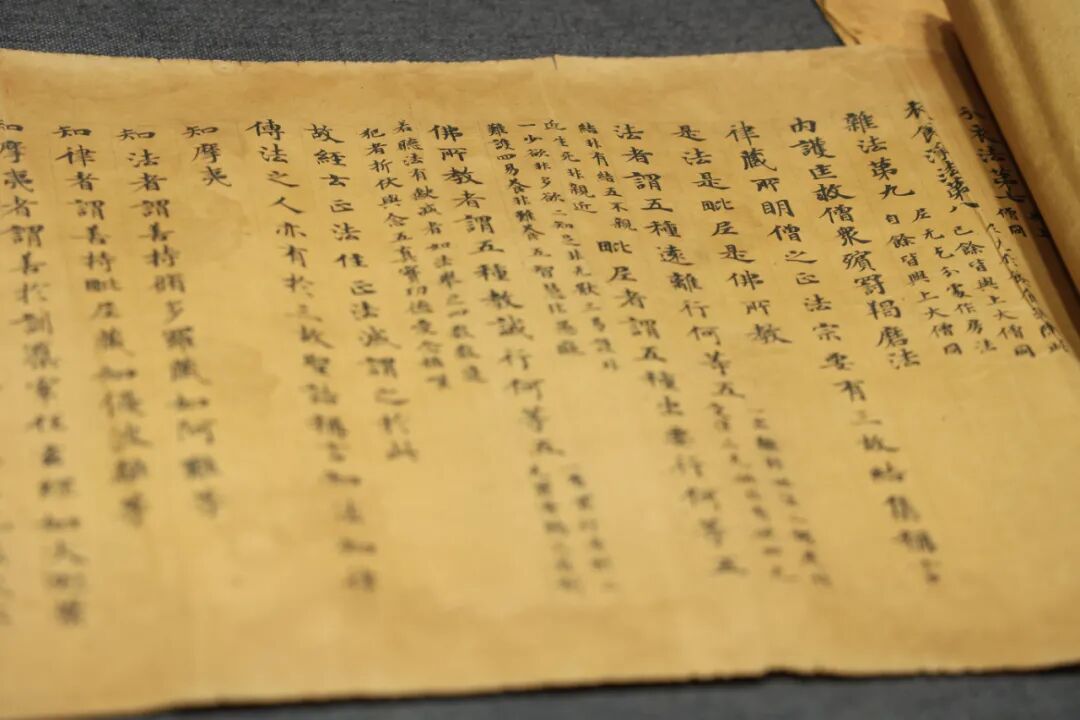 衣食淨法第八 已餘皆與上大僧同
尼无乞分衣作房法
雜法第九 自餘皆與上大僧同
内護匡救僧衆殯罸羯磨法
律藏所明僧之正法宗要有三故結集稱言
是法是毗尼是佛所教
法者謂五種遠離行何等五
結非有結五不親
近生死非親近
毗尼者謂五種出要行何等五
一少欲非多欲二知足非无厭三易護非
難護四易養非難養五智慧非愚癡
佛所教者謂五種教誡行何等五
若聽法有缺減者如法舉之四數數違
犯者折伏與念五真實功德愛念稱譽
故經云正法住正法滅謂之於此
傳法之人亦有於三故聖話稱言知法知律
知摩夷
知法者謂善持脩多羅藏如阿難等
知律者謂善持毗尼藏如優波離等
知摩夷者謂善於訓